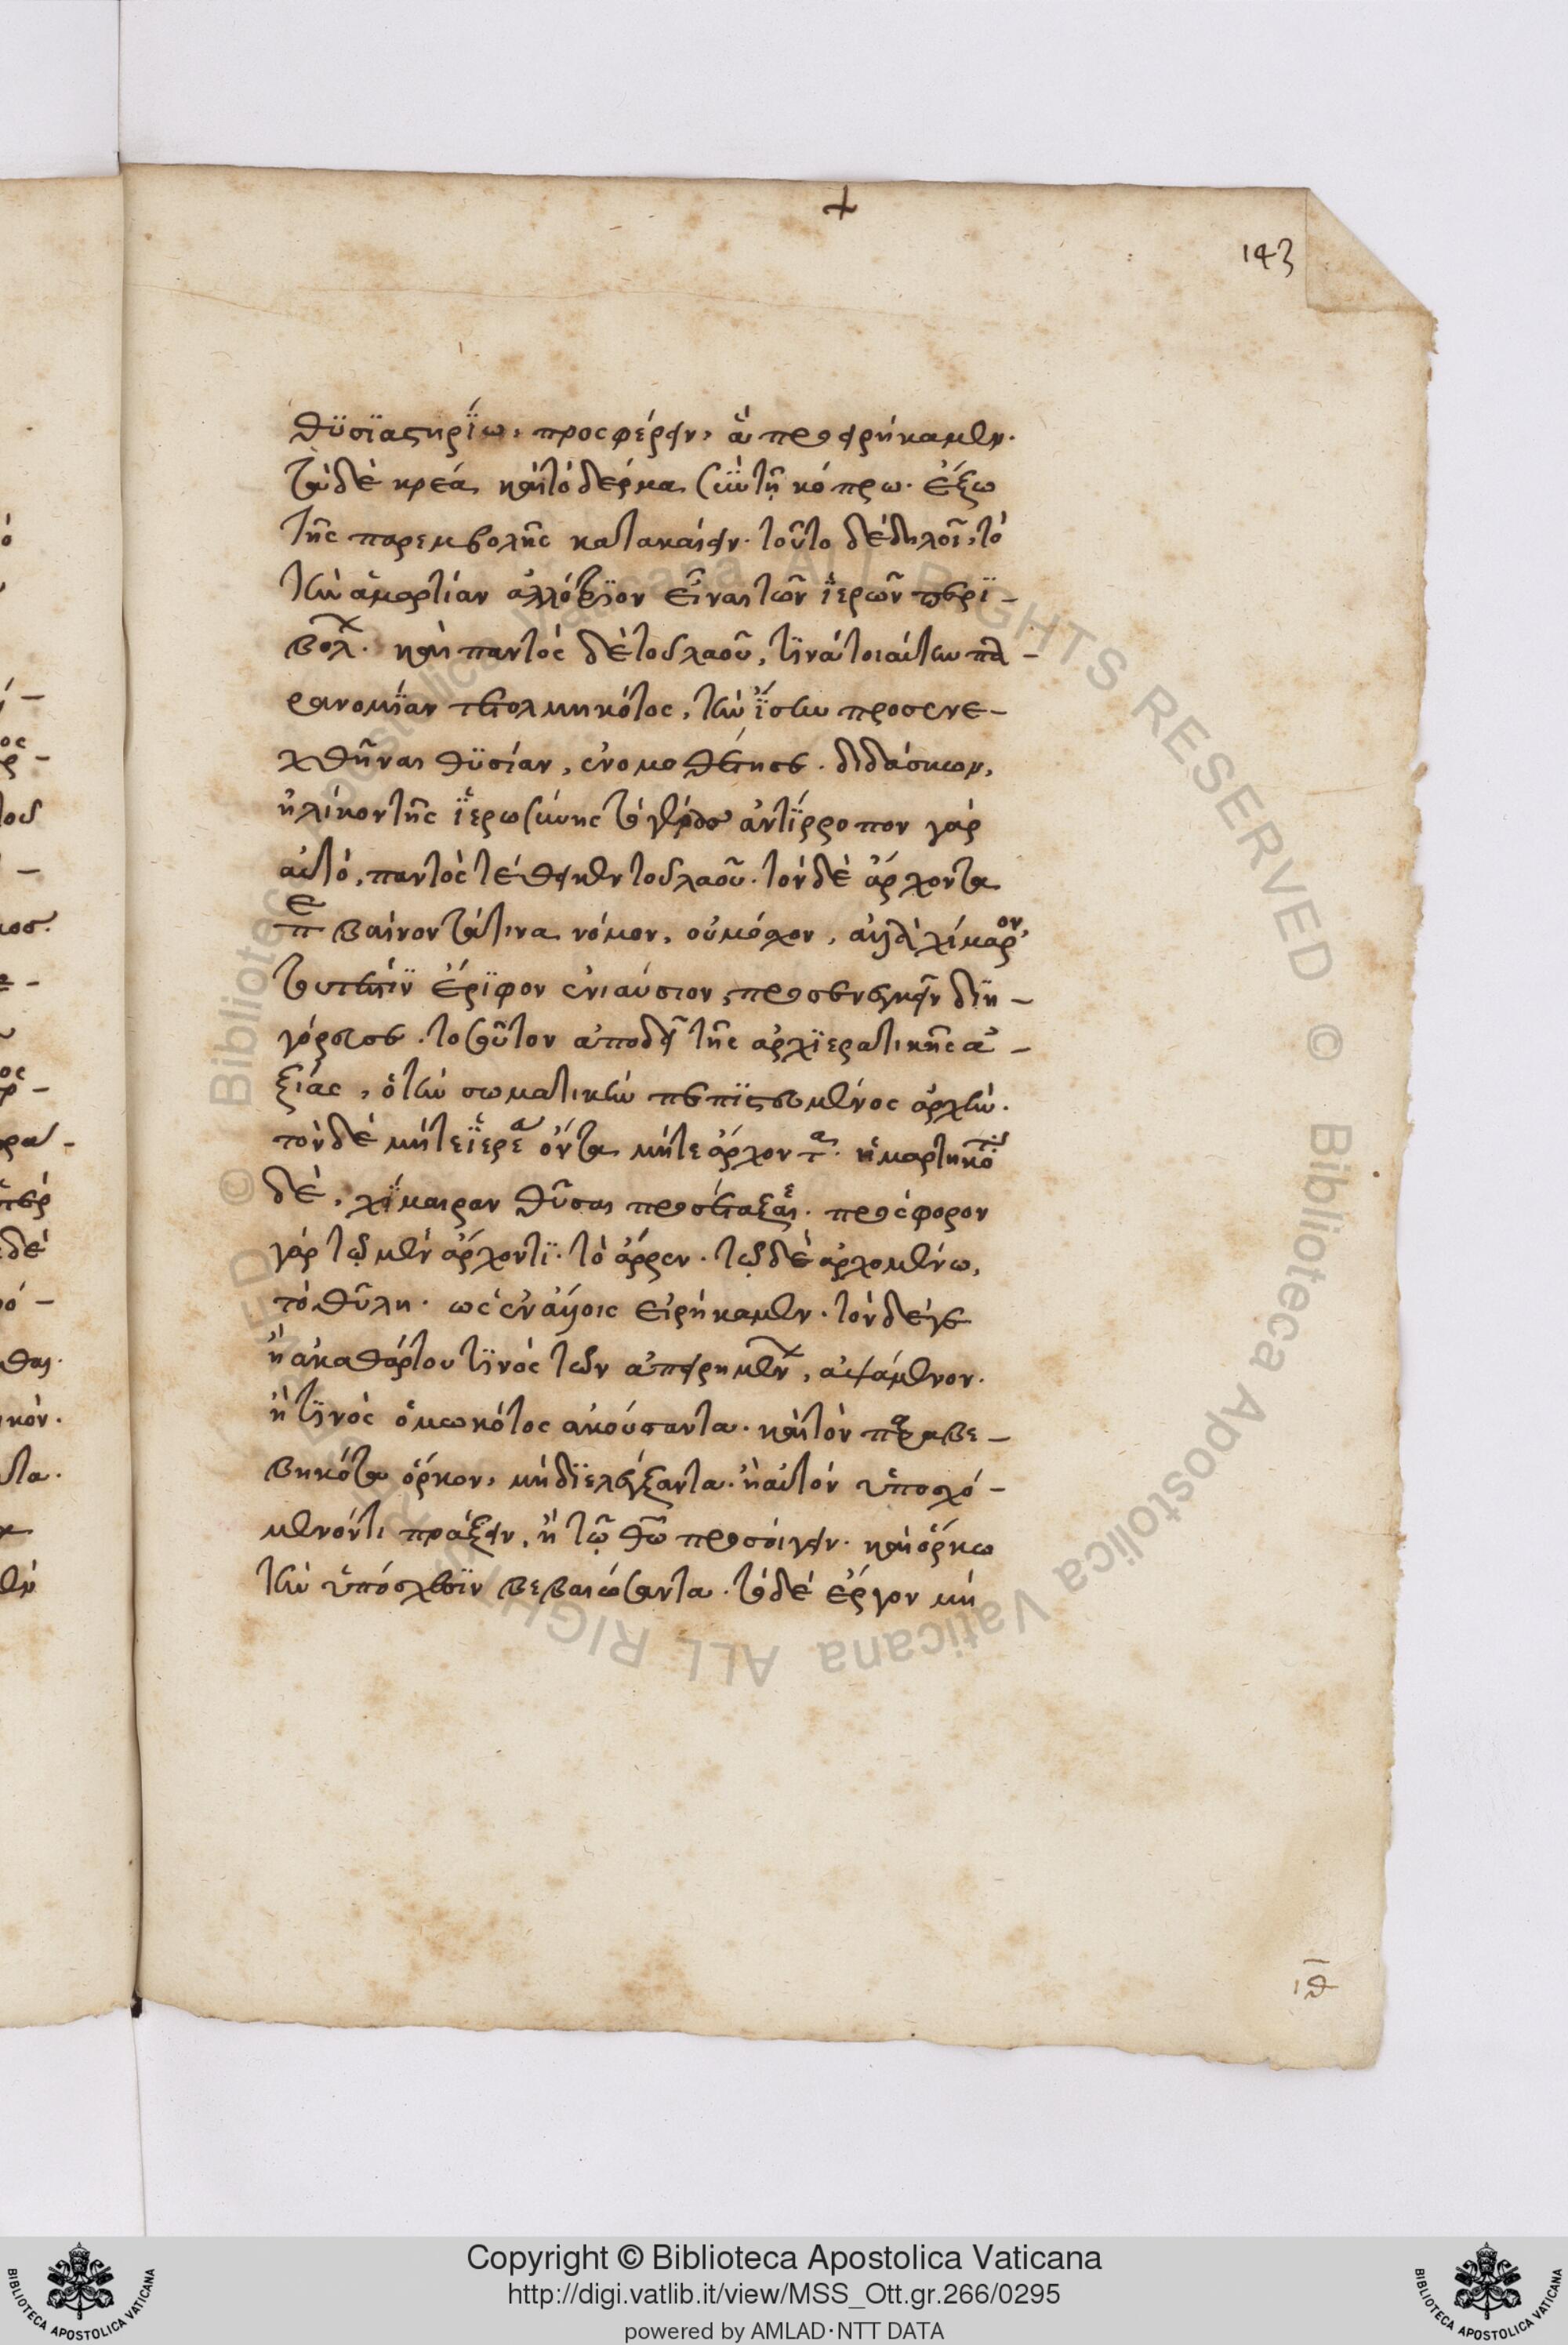 143
θϋσϊαστηρΐω, προσφέρειν, ἃ προειρήκαμεν.
τὰ δὲ κρέα, καὶ τὸ δέρμα σὺν τῇ κόπρω. ἔξω
τῆς παρεμβολῆς κατακαίειν. τοῦτο δὲ δηλοῖ, τὸ
τὴν ἁμαρτίαν ἀλλότρϊον εἶναι τῶν ϊερῶν περϊ-
βολ. καὶ παντὸς δὲ τοῦ λαοῦ, τϊνὰ τοιαύτην πα-
ρανομΐαν τετολμηκότος, τὴν ἴσην προσενε-
χθῆναι θϋσίαν, ἐνομοθέτησε. διδάσκων,
ἡλίκον τῆς ϊερωσύνης τὸ ἀντίρροπον γὰρ
αὐτὸ, παντὸς τέθεικεν τοῦ λαοῦ. τὸν δὲ ἄρχοντα
βαίνοντά τινα νόμον, οὐ μόσχον, ἀλλὰ χίμαρον,
τουτέστϊν ἔρϊφον ἐνιαύσιον, προσενεγκεῖν δϊη-
γόρευσε. τοσοῦτον ἀποδεῖ τῆς ἀρχϊερατικῆς ἀ-
ξίας, ὁ τὴν σωματικὴν πεπϊστευμένος ἀρχὴν.
τὸν δὲ μήτε ϊερέα ὄντα μήτε ἄρχοντα. ἡμαρτηκότα
δὲ, χΐμαιραν θῦσαι προσέταξε. πρόσφορον
γὰρ τῷ μὲν ἄρχοντϊ. τὸ ἄρρεν. τῷ δὲ ἀρχομένω,
τὸ θῦλη. ὡς ἐν ἄλλοις εἰρήκαμεν. τὸν δέ γε
ἢ ἀκαθάρτου τϊνὸς τῶν ἀπειρημέν, ἁψάμενον.
ἤ τϊνὸς ὀμωκότος ἀκούσαντα. καὶ τὸν παραβε-
βηκότα ὅρκον, μὴ δϊελέγξαντα. ἢ αὐτὸν ὑποσχό-
μενόν τι πράξειν, ἢ τῷ θῶ προσοίγειν. καὶ ὅρκω
τὴν ὑπόσχεσϊν βεβαιώσαντα. τὸ δὲ ἔργον μὴ
ιθ
Copyright © Biblioteca Apostolica Vaticana
http://digi.vatlib.it/view/MSS_Ott.gr.266/0295
powered by AMLAD·NTT DATA